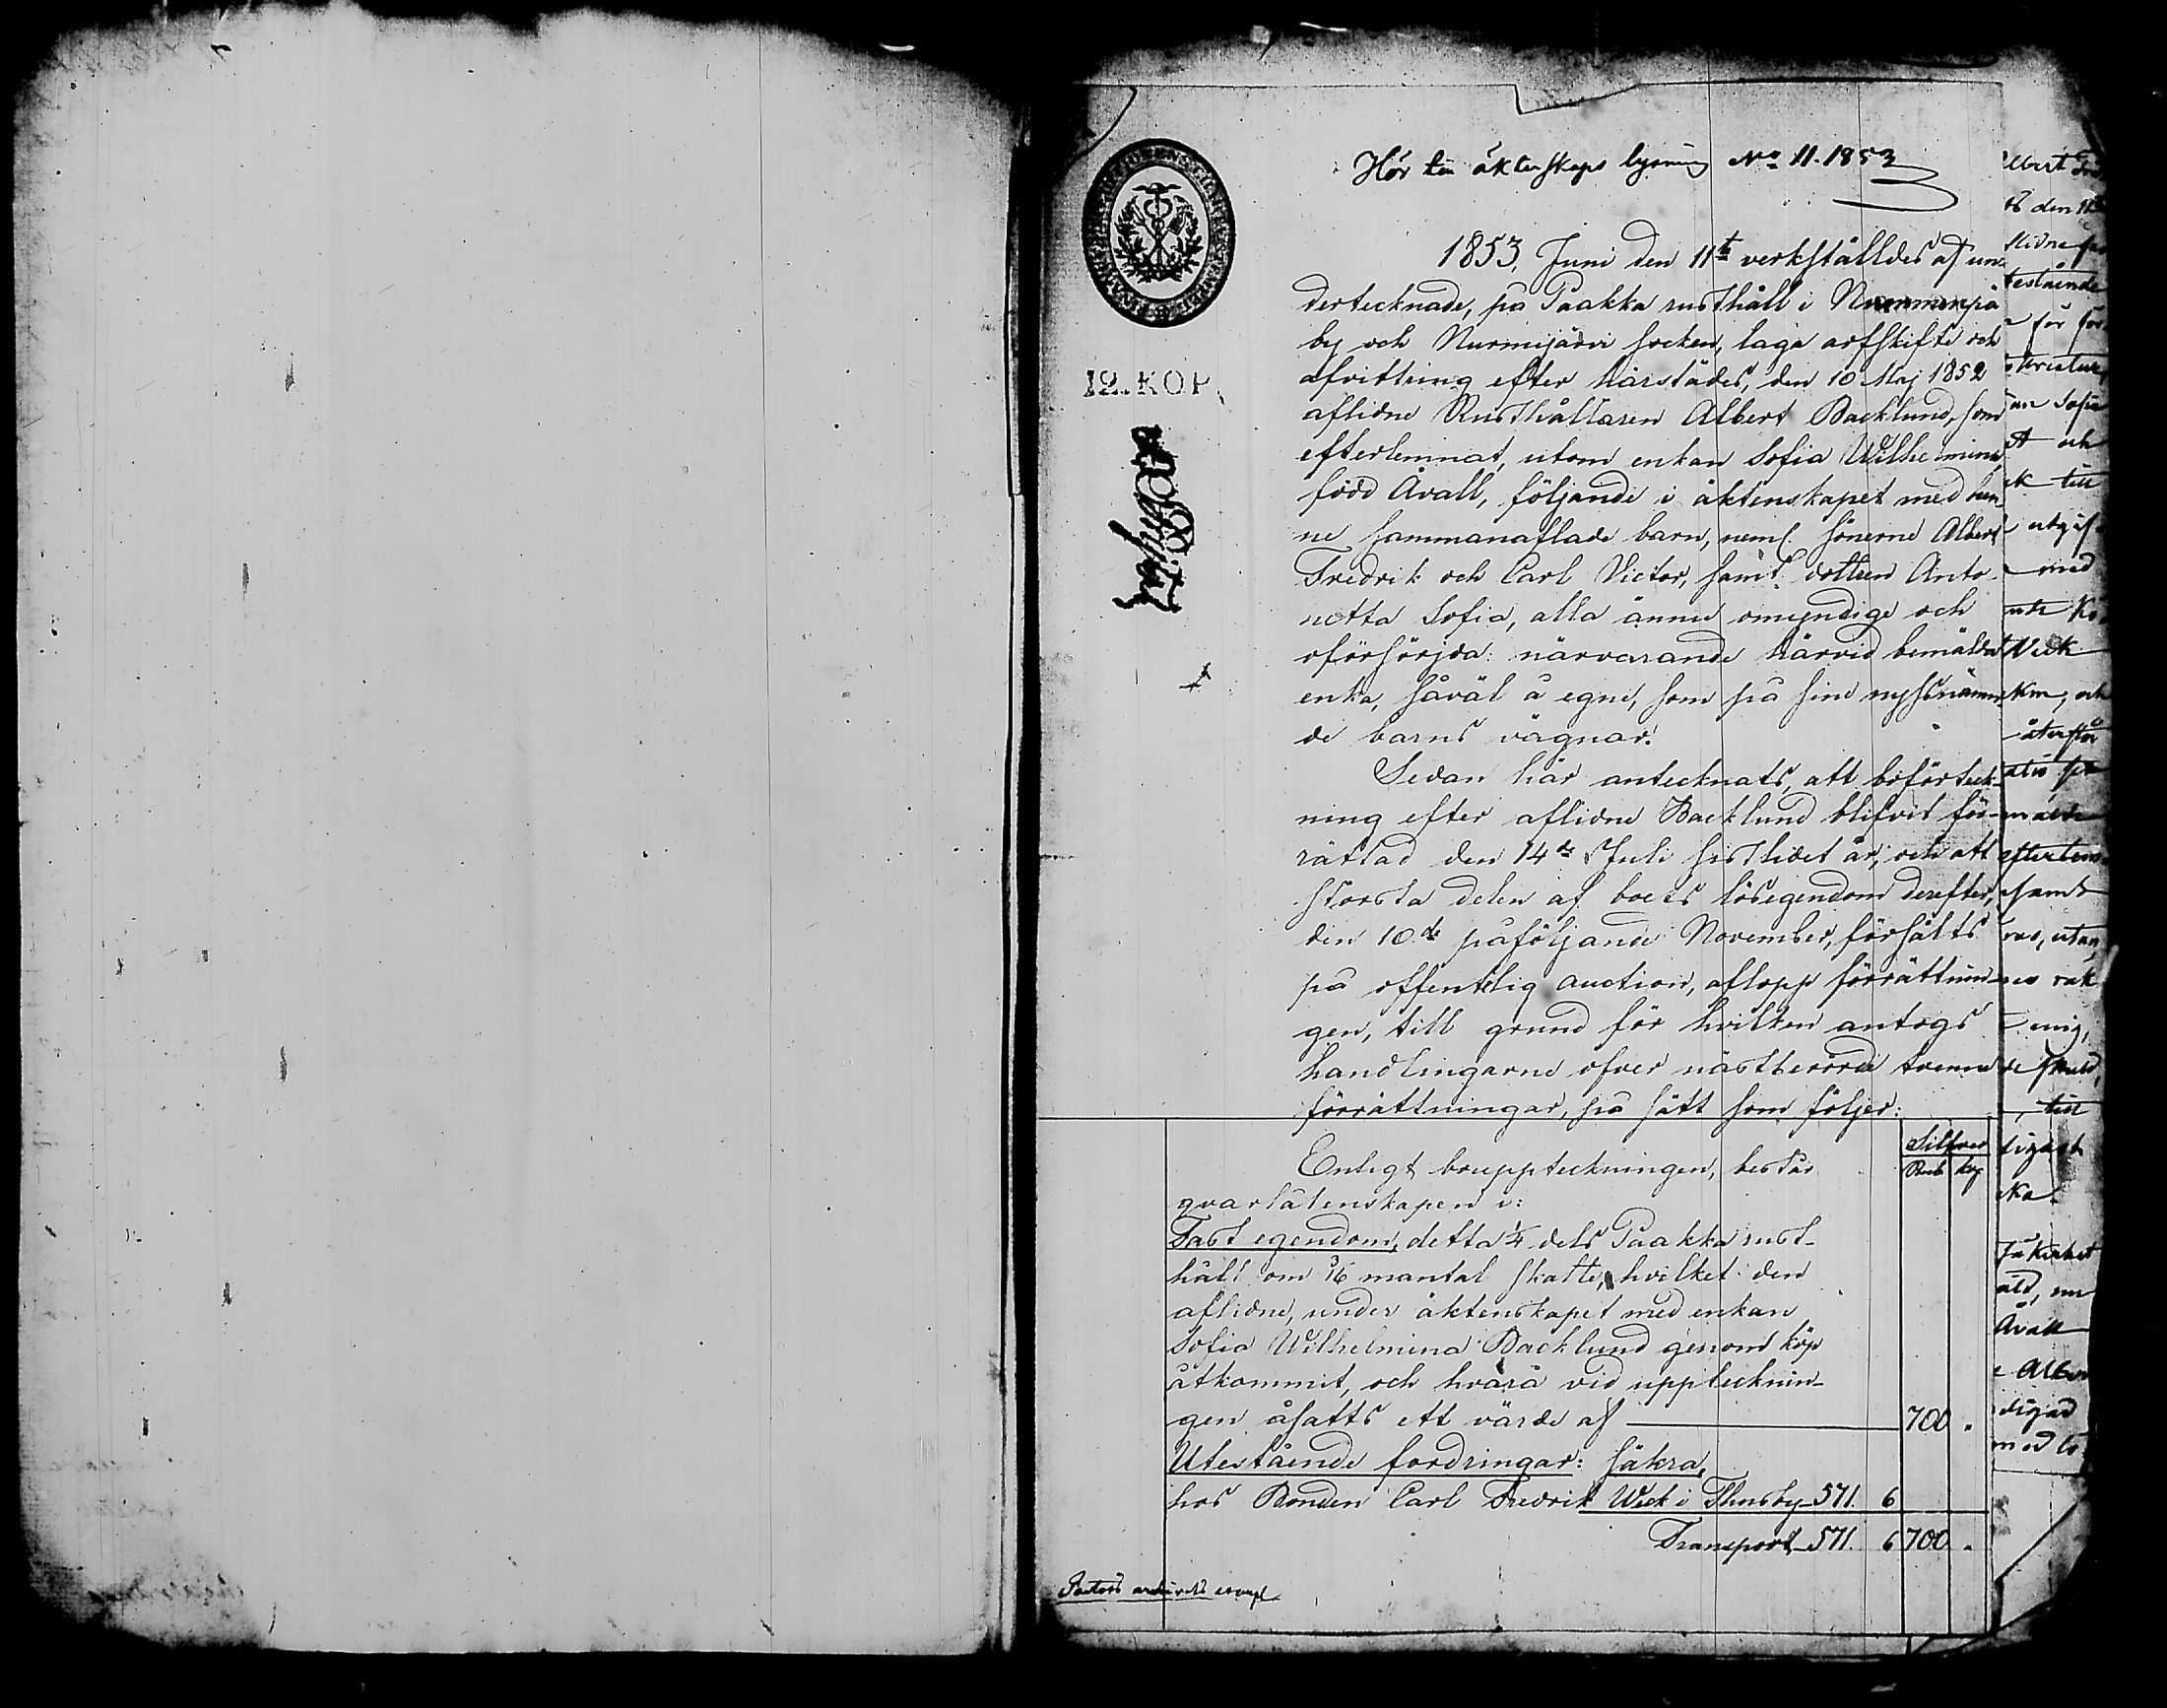 Hör till äktenskaps lysning No 11. 1853
1853, Juni den 11te verkställdes af un-
dertecknade, på Paakka rusthåll i Nummenpä
by och Nurmijärvi socken, laga arfskifte och
afvittring efter härstädes, den 10 Maj 1852
aflidne Rusthållaren Albert Backlund, som
efterlemnat, utom enkan Sofia Wilhelmina,
född Åvall, följande i äktenskapet med hen-
ne sammanaflade barn, neml. sönerne Albert
Fredrik och Carl Victor, samt dottren Anto-
netta Sofia, alla ännu omyndige och
oförsörjda: närvarande härvid bemälda
enka, såväl å egne, som på sine nyssnämn-
de barns vägnar.
Sedan här antecknats, att boförteck-
ning efter aflidne Backlund blifvit för-
rättad den 14de Juli sistlidet år, och att
största delen af boets lösegendom derefter,
den 10de påföljande November, försålts
på offentelig auction, aflopp förrättnin-
gen, till grund för hvilken antogs
handlingarne öfver nästberörde tvenne
förrättningar, på sätt som följer:
Silfver
Rub kop
Enligt bouppteckningen, består
qvarlåtenskapen i:
Fast egendom, detta 1/4 dels Paakka rust-
håll om 3/16 mantal skatte, hvilket den
aflidne, under äktenskapet med enkan
Sofia Wilhelmina Backlund genom köp
åtkommit, och hvarå vid upptecknin-
gen åsatts ett värde af 700 "
Utestående fordringar: säkra,
hos Bonden Carl Fredrik Weck i Thusby 571. 6
Transport 571. 6 700 "
12. KOP.
Pastors archivets exempl